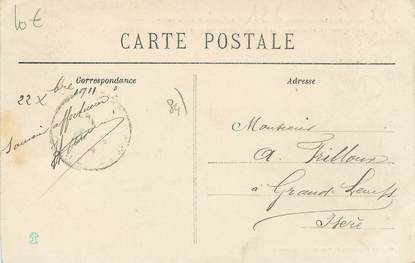 10€
CARTE POSTALE
Correspondance
Adresse
22 Xbre 1911
Souvenir affectueux
84
Monsieur
A. Trilloux
à Grand Lemps
Isère